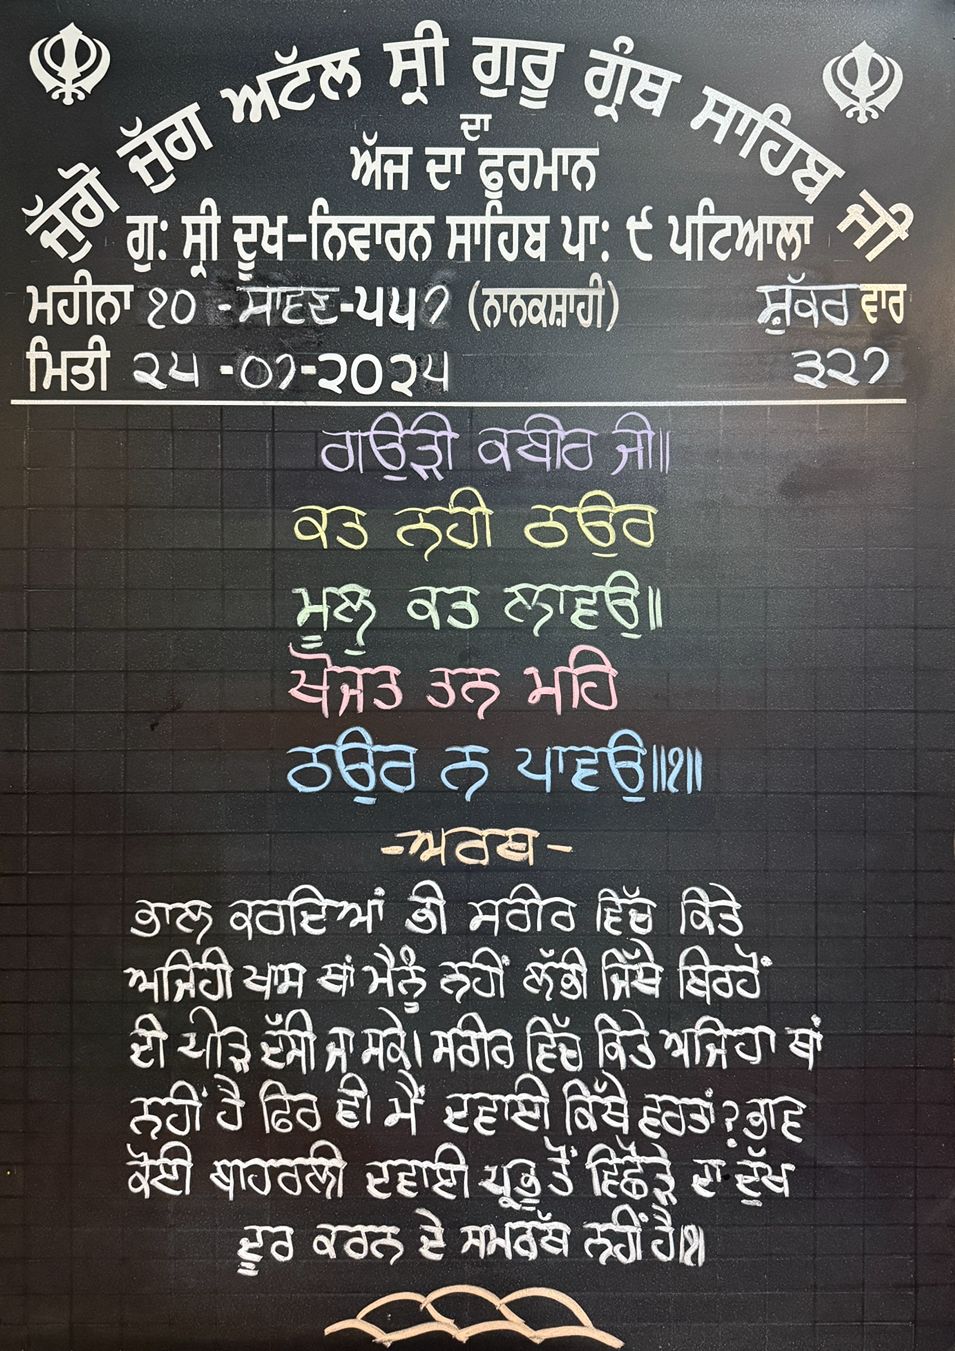 ਜੁੱਗੋ ਜੁੱਗ ਅਟੱਲ ਸ੍ਰੀ ਗੁਰੂ ਗ੍ਰੰਥ ਸਾਹਿਬ ਜੀ
ਦਾ
ਅੱਜ ਦਾ ਫੁਰਮਾਨ
ਗੁ: ਸ੍ਰੀ ਦੂਖ-ਨਿਵਾਰਨ ਸਾਹਿਬ ਪਾ: ੯ ਪਟਿਆਲਾ
ਮਹੀਨਾ ੧੦ - ਸਾਵਣ-੫੫੭ (ਨਾਨਕਸ਼ਾਹੀ) ਸ਼ੁੱਕਰ ਵਾਰ
ਮਿਤੀ ੨੫ -੦੭-੨੦੨੫ ੩੨੭
ਗਉੜੀ ਕਬੀਰ ਜੀ॥
ਕਤ ਨਹੀ ਠਉਰ
ਮੂਲੁ ਕਤ ਲਾਵਉ॥
ਖੋਜਤ ਤਨ ਮਹਿ
ਠਉਰ ਨ ਪਾਵਉ॥੧॥
-ਅਰਥ-
ਭਾਲ ਕਰਦਿਆਂ ਭੀ ਸਰੀਰ ਵਿੱਚ ਕਿਤੇ
ਅਜਿਹੀ ਖਾਸ ਥਾਂ ਮੈਨੂੰ ਨਹੀਂ ਲੱਭੀ ਜਿੱਥੇ ਬਿਰਹੋਂ
ਦੀ ਪੀੜ ਦੱਸੀ ਜਾ ਸਕੇ। ਸਰੀਰ ਵਿੱਚ ਕਿਤੇ ਅਜਿਹਾ ਥਾਂ
ਨਹੀਂ ਹੈ ਫਿਰ ਵੀ ਮੈਂ ਦਵਾਈ ਕਿੱਥੇ ਵਰਤਾਂ? ਭਾਵ
ਕੋਈ ਬਾਹਰਲੀ ਦਵਾਈ ਪ੍ਰਭੂ ਤੋਂ ਵਿਛੋੜੇ ਦਾ ਦੁੱਖ
ਦੂਰ ਕਰਨ ਦੇ ਸਮਰੱਥ ਨਹੀਂ ਹੈ॥੧॥